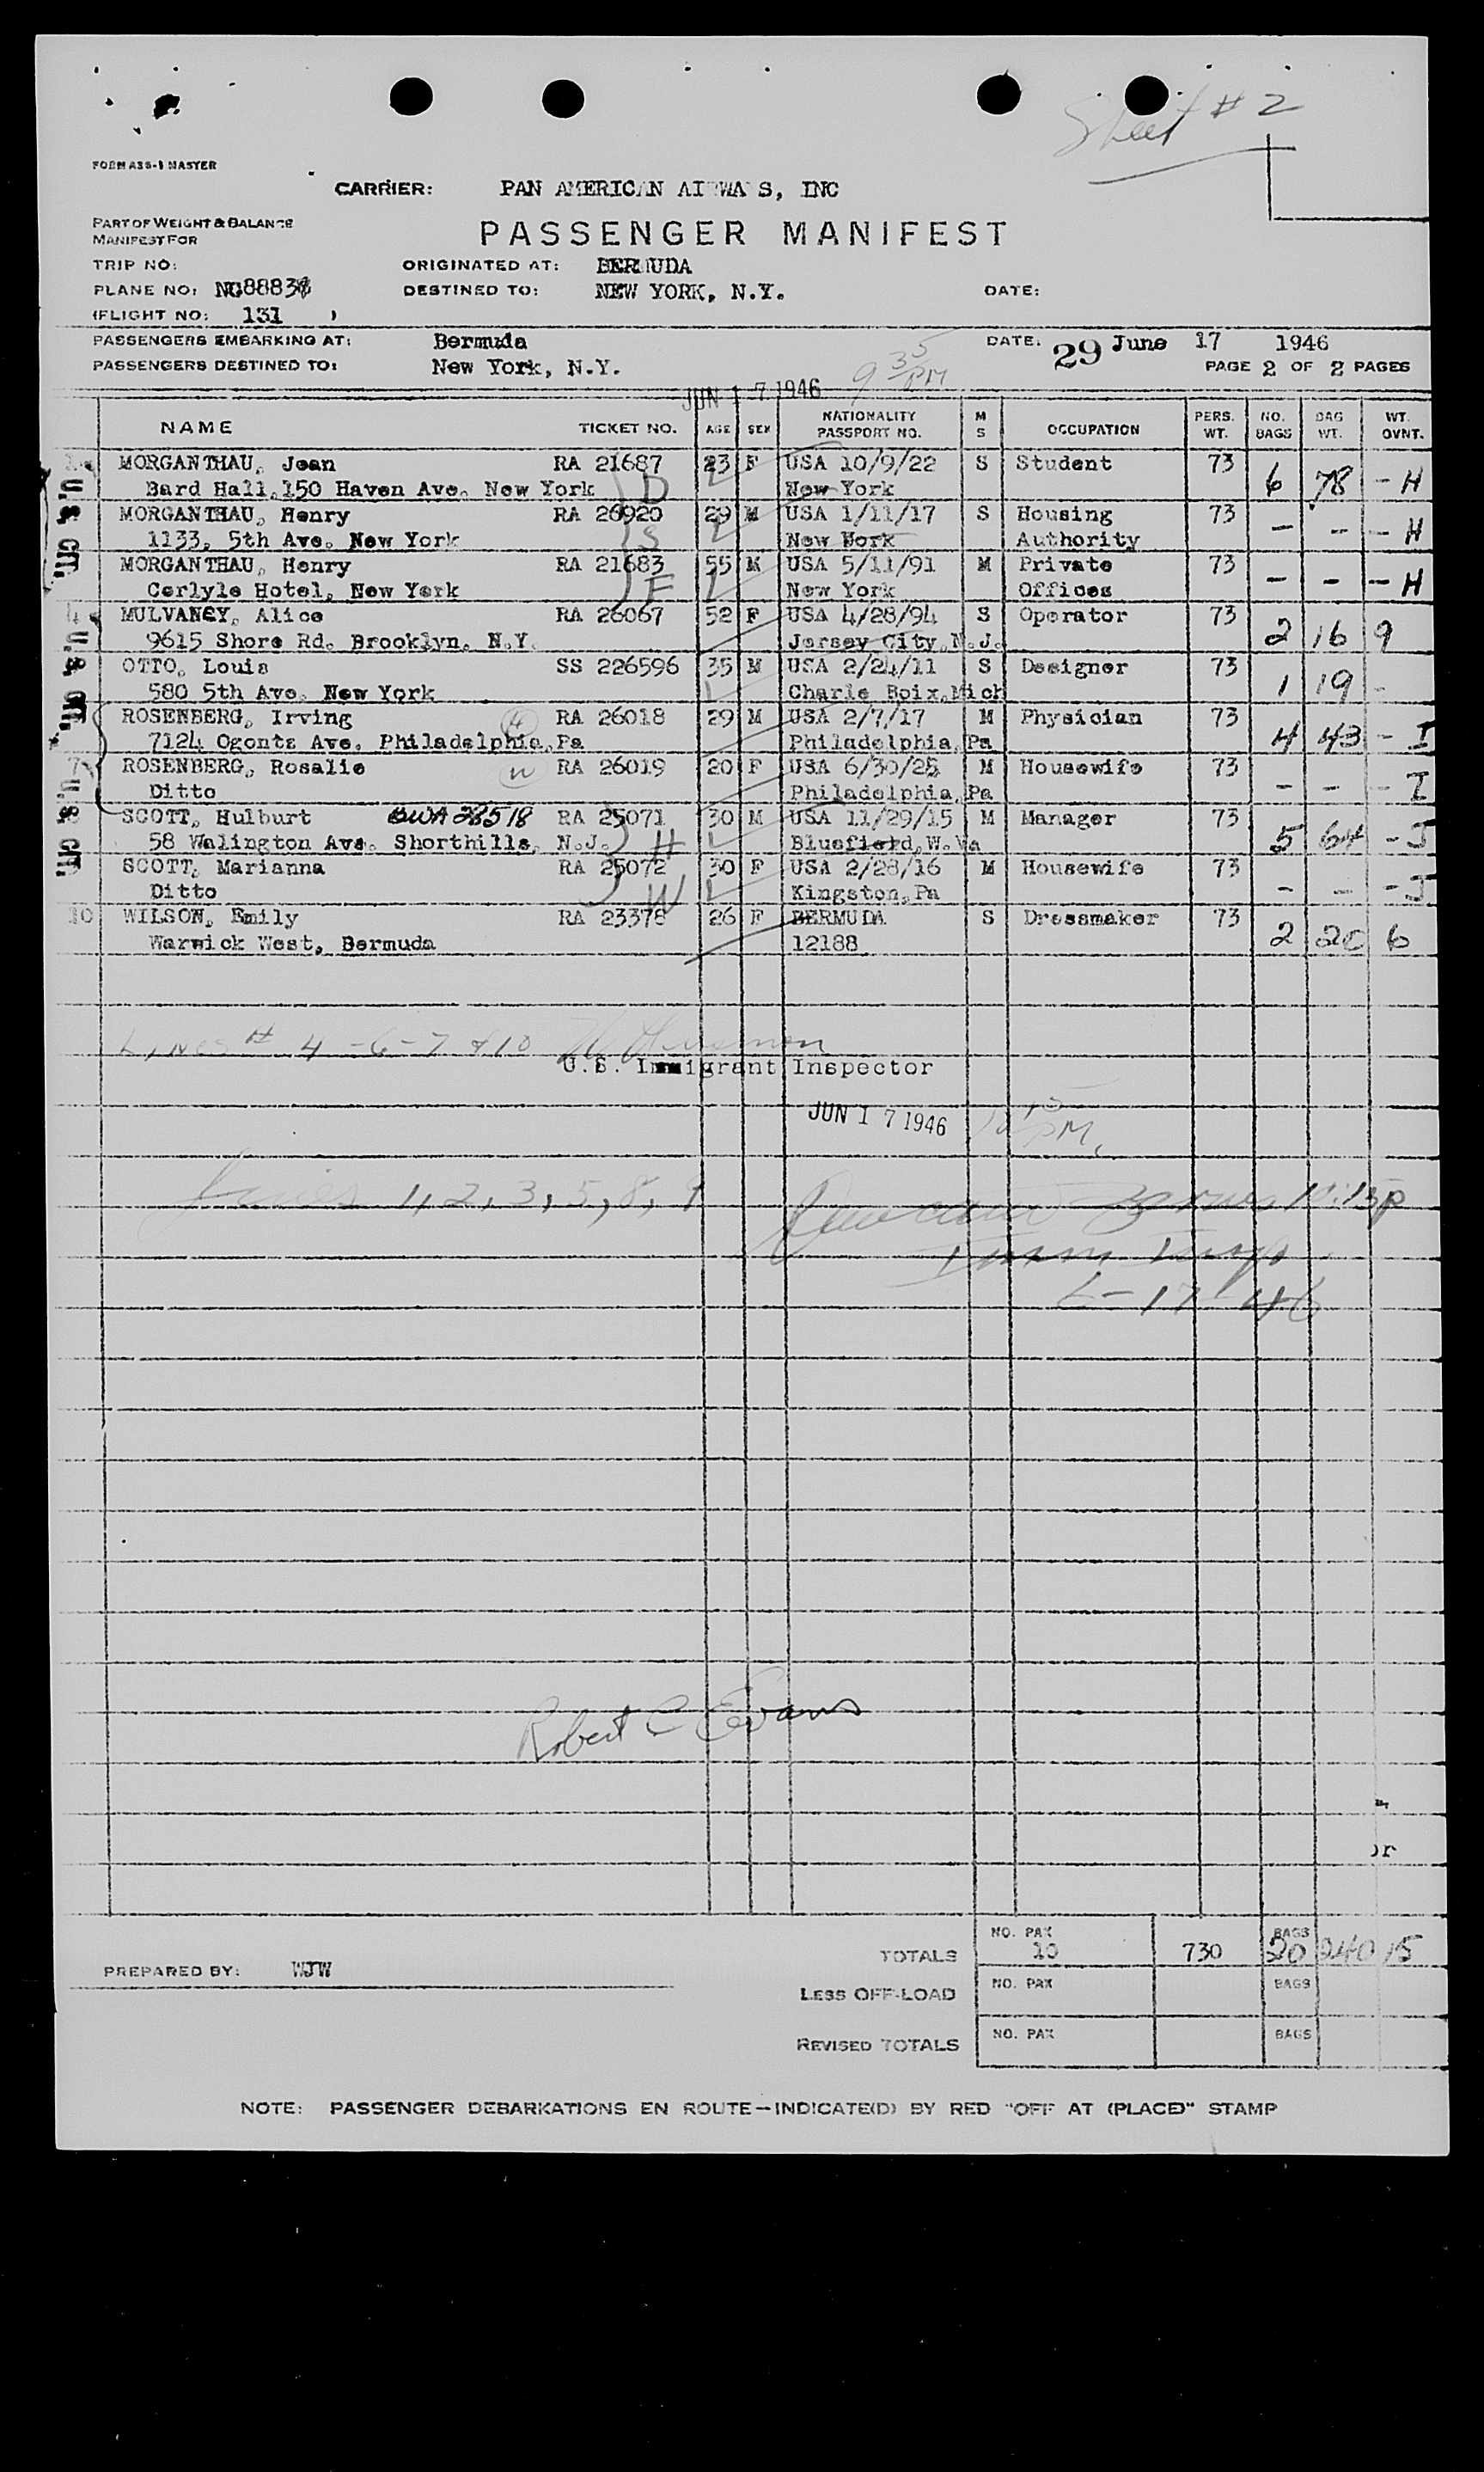 Sheet # 2
FORM A38-1 MASTER
CARRIER: PAN AMERICAN AIRWAYS, INC
PART OF WEIGHT & BALANCE
MANIFEST FOR
PASSENGER MANIFEST
TRIP NO: ORIGINATED AT: BERMUDA
PLANE NO: NC88838 DESTINED TO: NEW YORK, N.Y. DATE:
(FLIGHT NO: 131 )
PASSENGERS EMBARKING AT: Bermuda DATE: 29 June 17 1946
PASSENGERS DESTINED TO: New York, N.Y. 9 35 PM PAGE 2 OF 2 PAGES
JUN 17 1946
NAME TICKET NO. AGE SEX NATIONALITY PASSPORT NO. M S OCCUPATION PERS. WT. NO. BAGS BAG WT. WT. OVNT.
MORGANTHAU, Jean RA 21687 23 F USA 10/9/22 S Student 73 6 78 - H
Bard Hall,150 Haven Ave. New York D New York
MORGANTHAU, Henry RA 26920 29 M USA 1/11/17 S Housing 73 - - - H
1133, 5th Ave. New York S New Work Authority
MORGANTHAU, Henry RA 21683 55 M USA 5/11/91 M Private 73 - - - H
Carlyle Hotel, New York F New York Offices
4 MULVANEY, Alice RA 26067 52 F USA 4/28/94 S Operator 73 2 16 9
9615 Shore Rd. Brooklyn. N.Y. Jersey City,N.J.
OTTO, Louis SS 226596 35 M USA 2/24/11 S Designer 73 1 19 -
580 5th Ave. New York Charle Boix,Mich
ROSENBERG, Irving H RA 26018 29 M USA 2/7/17 M Physician 73 4 43 - I
7124 Ogontz Ave. Philadelphia,Pa Philadelphia,Pa
7 ROSENBERG, Rosalie W RA 26019 20 F USA 6/30/25 M Housewife 73 - - - I
Ditto Philadelphia,Pa
SCOTT, Hulburt BWA 28518 RA 25071 30 M USA 11/29/15 M Manager 73 5 64 - J
58 Walington Ave. Shorthills, N.J. H Bluefield,W.Va
SCOTT, Marianna RA 25072 30 F USA 2/28/16 M Housewife 73 - - - J
Ditto W Kingston,Pa
10 WILSON, Emily RA 23378 26 F BERMUDA S Dressmaker 73 2 20 6
Warwick West, Bermuda 12188
U.S. CIT.
U.S. CIT.
U.S. CIT.
Lines # 4 -6-7 & 10
U.S. Immigrant Inspector
JUN 17 1946 PM.
Lines 1, 2, 3, 5, 8, 9 10:15p
Imm Insp
6-17-46
Robert C Evans
or
TOTALS NO. PAX 10 730 BAGS 20 240 15
PREPARED BY: WJW
LESS OFF-LOAD NO. PAX BAGS
REVISED TOTALS NO. PAX BAGS
NOTE: PASSENGER DEBARKATIONS EN ROUTE—INDICATE(D) BY RED "OFF AT (PLACE)" STAMP